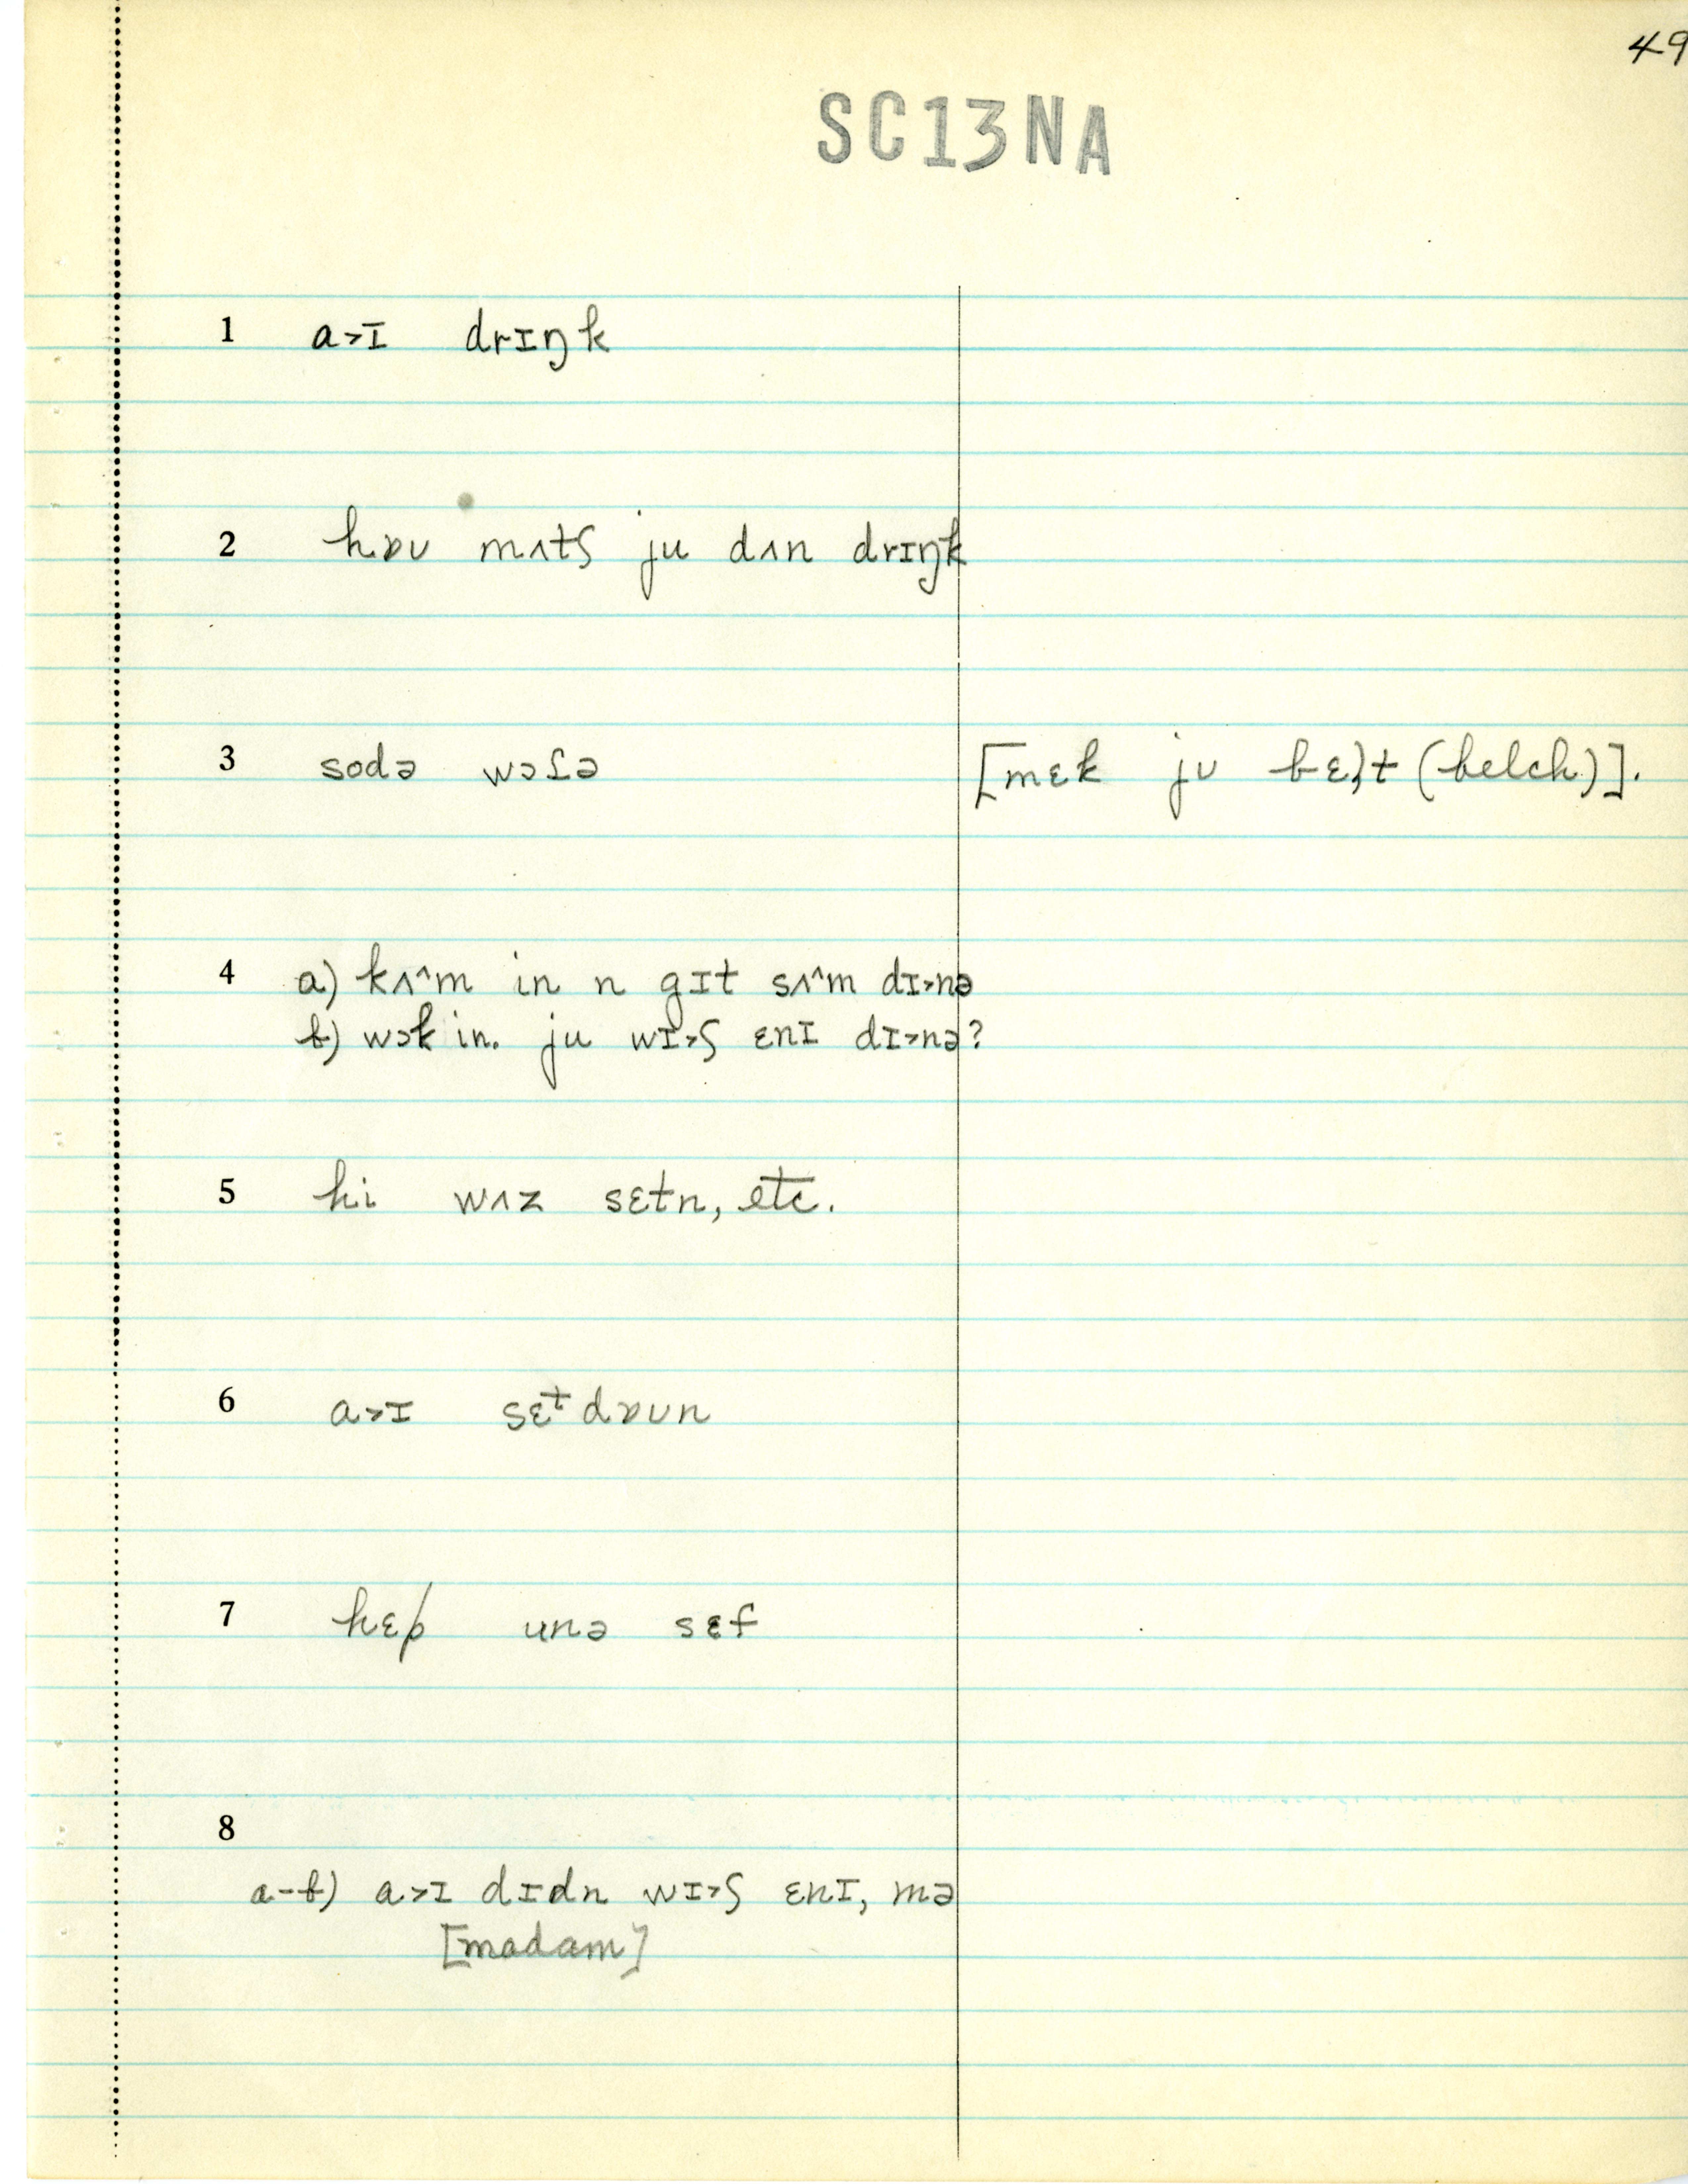 49
SC13NA
1 a˃ɪ drɪŋk
2 hɒʊ mʌtʃ ju dʌn drɪŋk
3 sodə wɔɾə [mɛk jʊ bɛ˒t (belch)].
4 a) kʌ^m in n gɪt sʌ^m dɪ˃nə
b) wɔk in. ju wɪ˃ʃ ɛnɪ dɪ˃nə?
5 hi wʌz sɛtn, etc.
6 a˃ɪ sɛᵗdɒʊn
7 hɛp unə sɛf
8
a-b) a˃ɪ dɪdn wɪ˃ʃ ɛnɪ, mə
[madam]